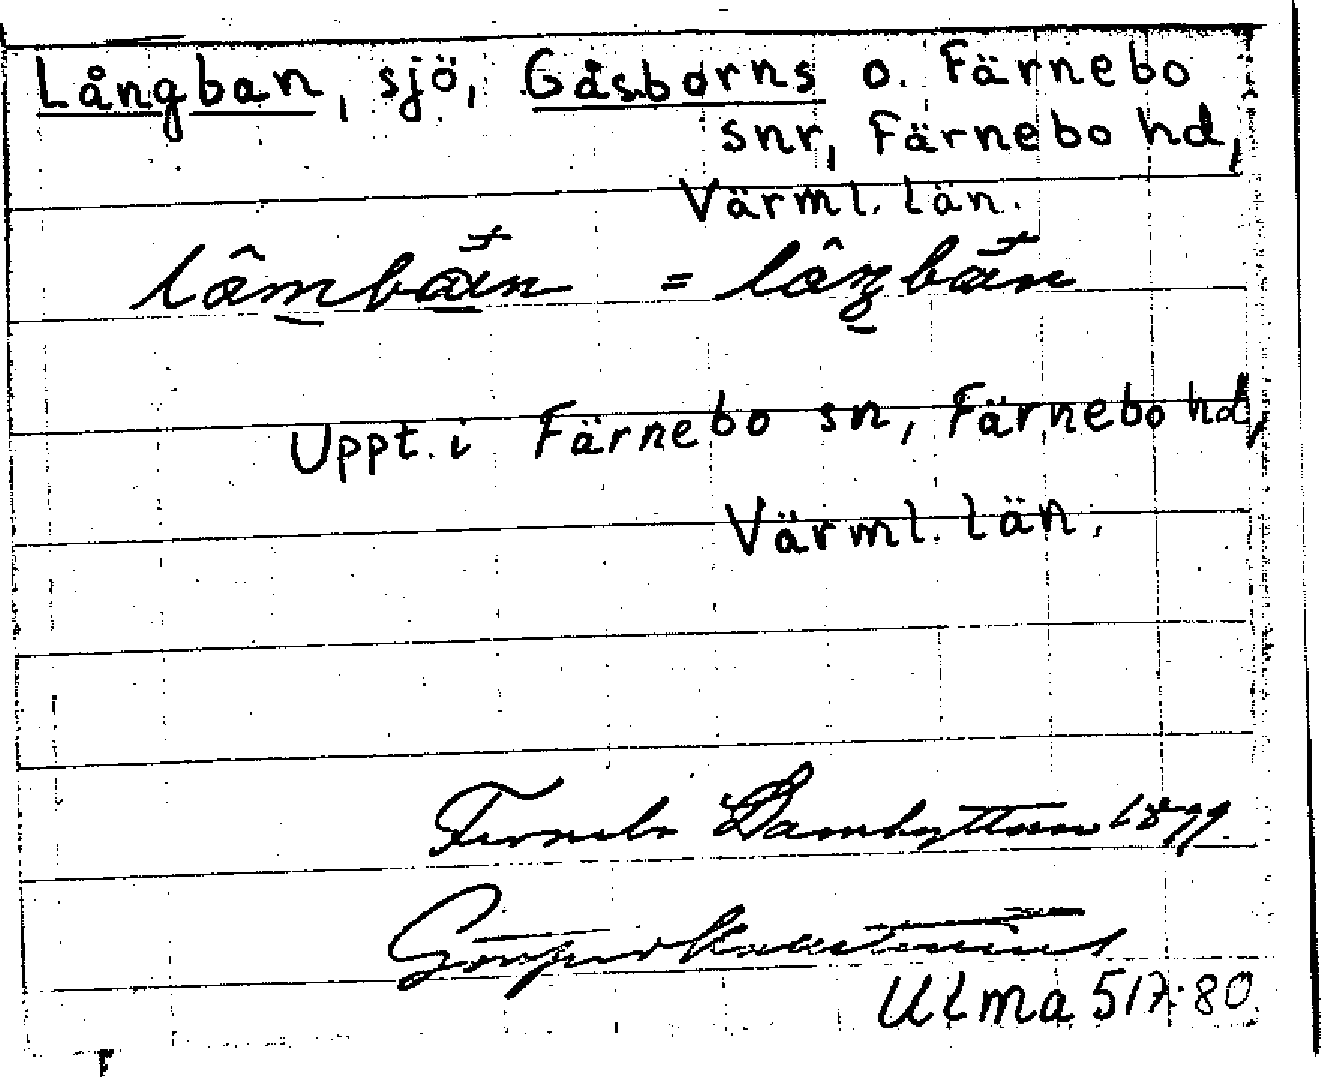 Långban, sjö, Gåsborns o. Färnebo
snr, Färnebo hd,
Värml. län.
lâmbøn = lâŋbān
Uppt. i Färnebo sn, Färnebo hd,
Värml. län.
Fernebo 1899.
Ulma 517:80